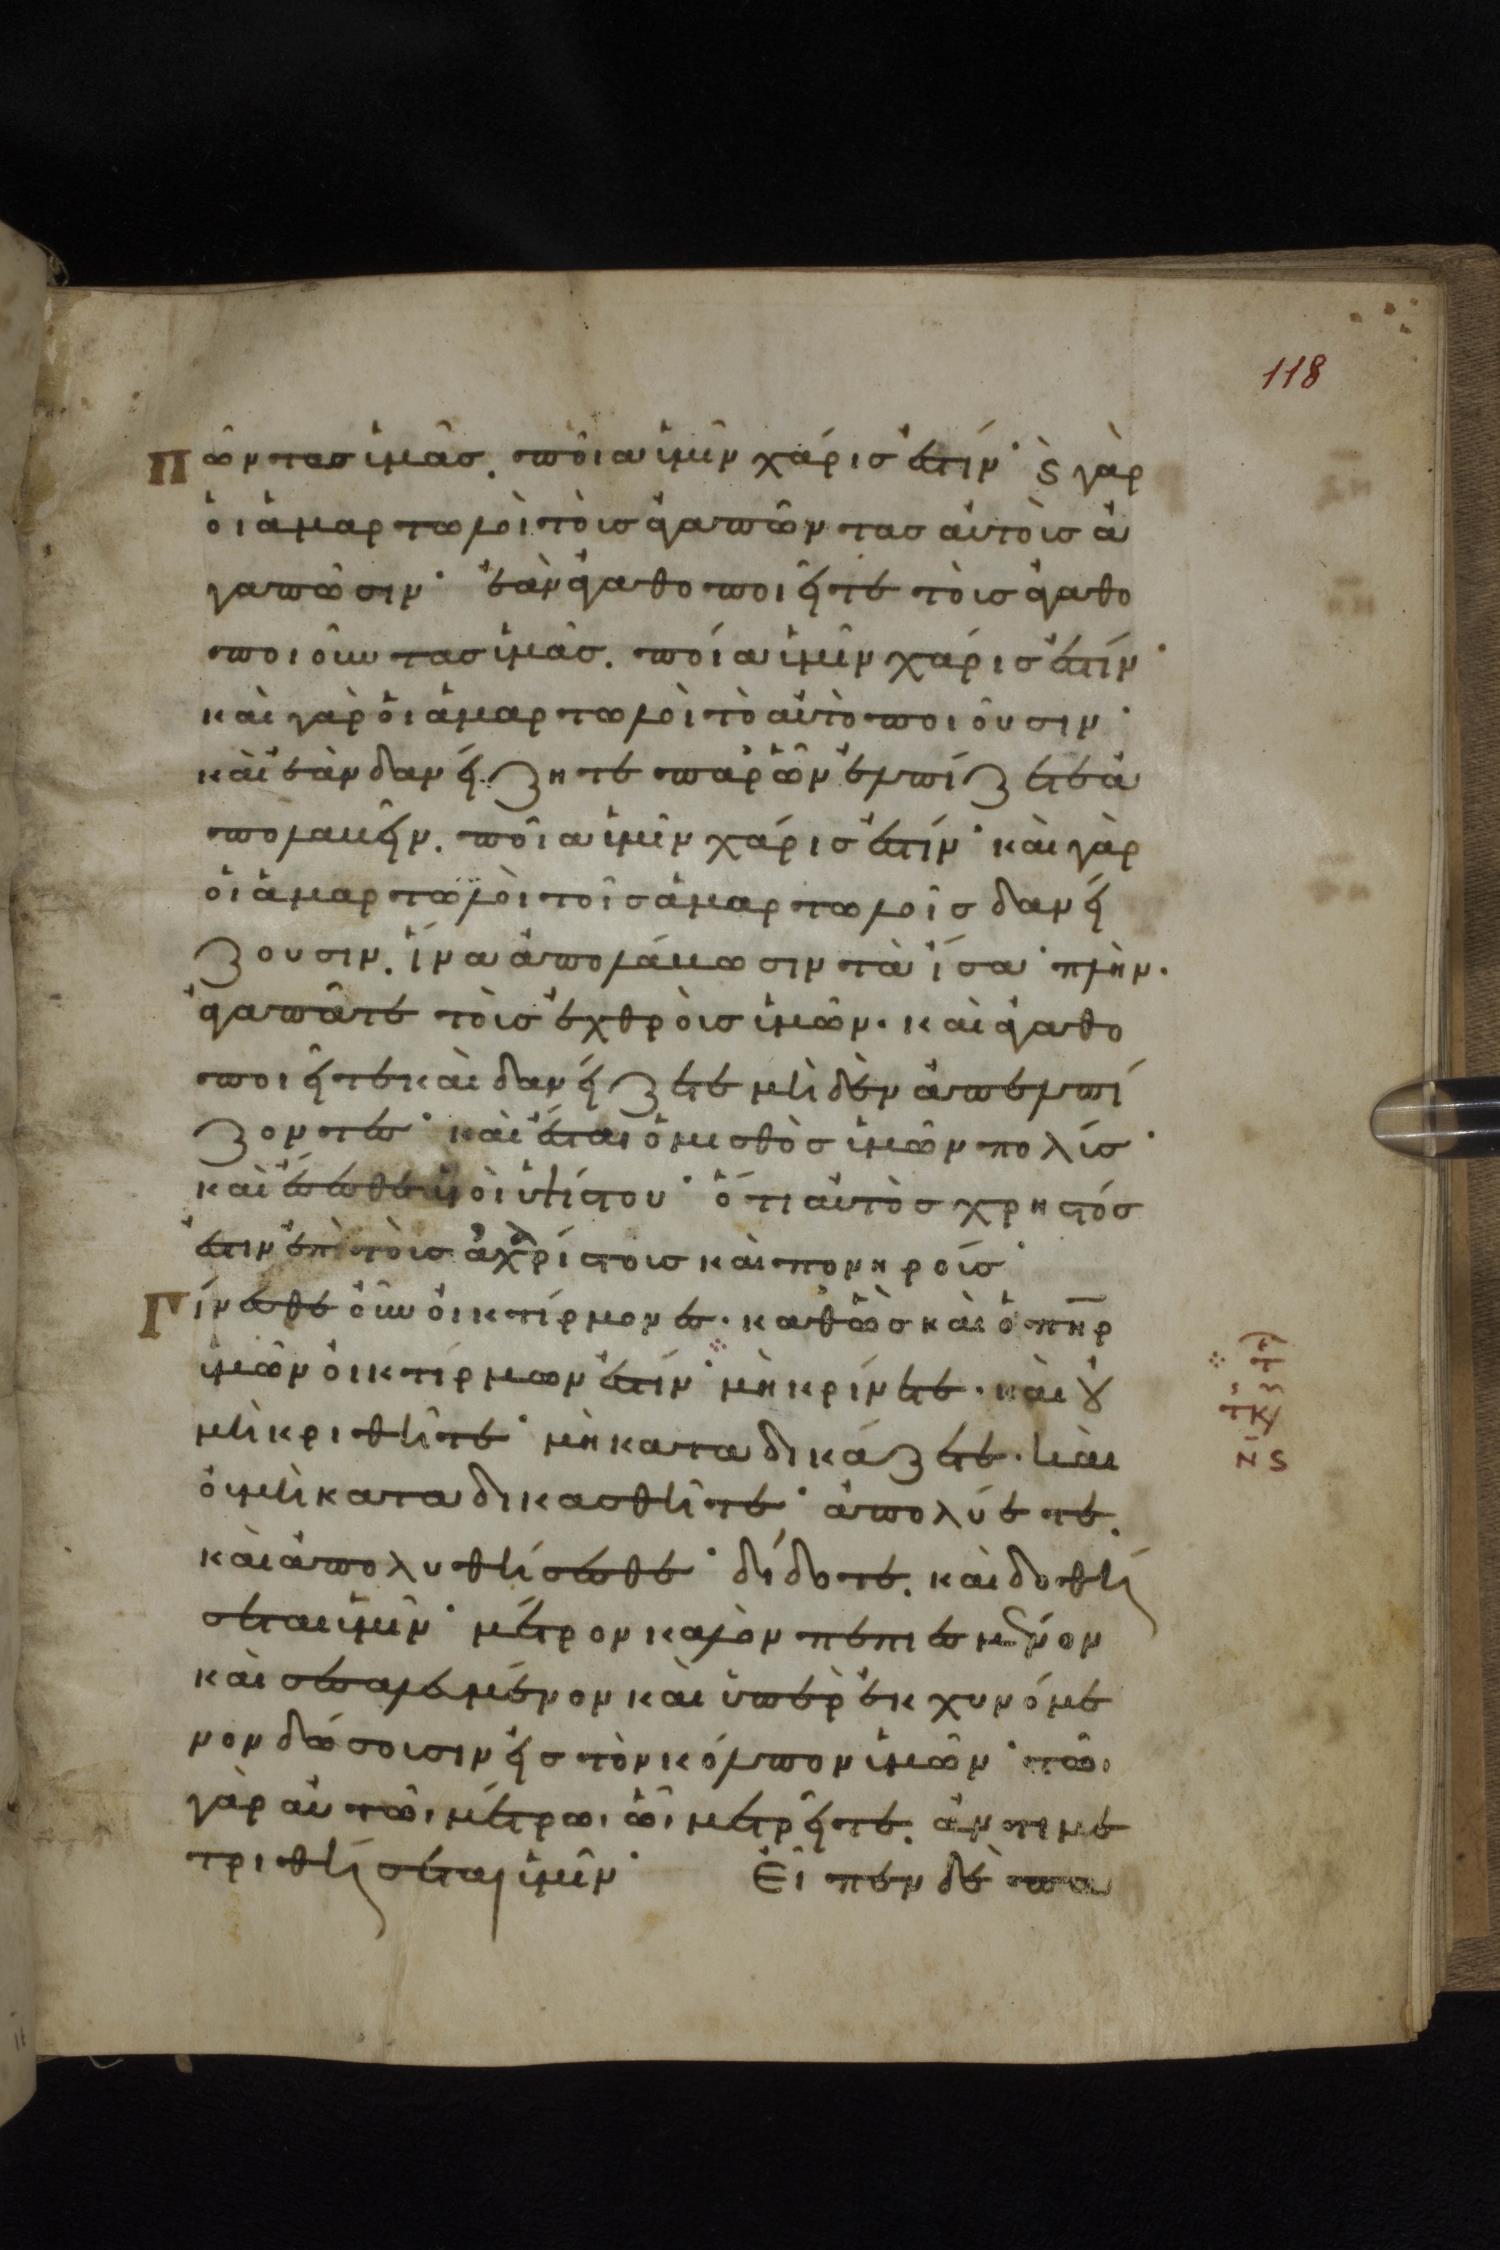 118
πῶντασ ὑμᾶσ. ποῖα ὑμῖν χάρισ ἐστίν· ϛ γὰρ
ὁι ἁμαρτωλοὶ τοὺσ ἀγαπῶντασ αὐτοὺσ ἀ
γαπῶσιν· ἐὰν ἀγαθοποιῆτε τοὺσ ἀγαθο
ποιοῦντασ ὑμᾶσ. ποία ὑμῖν χάρισ ἐστίν·
καὶ γὰρ ὁι ἁμαρτωλοὶ τὸ αὐτὸ ποιοῦσιν·
καὶ ἐὰν δανείζητε παρ ὧν ἐλπίζετε ἀ
πολαβεῖν. ποῖα ὑμῖν χάρισ ἐστίν· καὶ γὰρ
ὁι ἁμαρτωλοὶ τοῖσ ἁμαρτωλοῖσ δανεί
ζουσιν. ἵνα ἀπολάβωσιν τὰ ἴσα· πλὴν.
ἀγαπᾶτε τοὺσ ἐχθροὺσ ὑμῶν. καὶ ἀγαθο
ποιεῖτε καὶ δανείζετε μηδὲν ἀπελπί
ζοντεσ· καὶ ἔσται ὁ μισθὸσ ὑμῶν πολύσ·
καὶ ἔσεσθε υἱοὶ ὑψίστου· ὅτι αὐτὸσ χρηστόσ
ἐστιν ἐπὶ τοὺσ ἀχαρίστουσ καὶ πονηρούσ·
Γίνεσθε οὖν οἰκτίρμονεσ. καθὼσ καὶ ὁ πηρ
ὑμῶν οἰκτίρμων ἐστίν· μὴ κρίνετε. καὶ ȣ
μὴ κριθῆτε· μὴ καταδικάζετε. καὶ
ὀυ μὴ καταδικασθῆτε· ἀπολύετε.
καὶ ἀπολυθήσεσθε· δίδοτε. καὶ δοθή
σεται ὑμῖν· μέτρον καλὸν πεπιεσμένον
καὶ σεσαλεμένον καὶ ὑπερεκχυνόμε
νον δώσουσιν εἰσ τὸν κόλπον ὑμῶν· τῶι
γὰρ αὐτῶι μέτρωι ὧι μετρεῖτε. ἀντιμε
τριθήσεται ὑμῖν· Εἶπεν δὲ πα